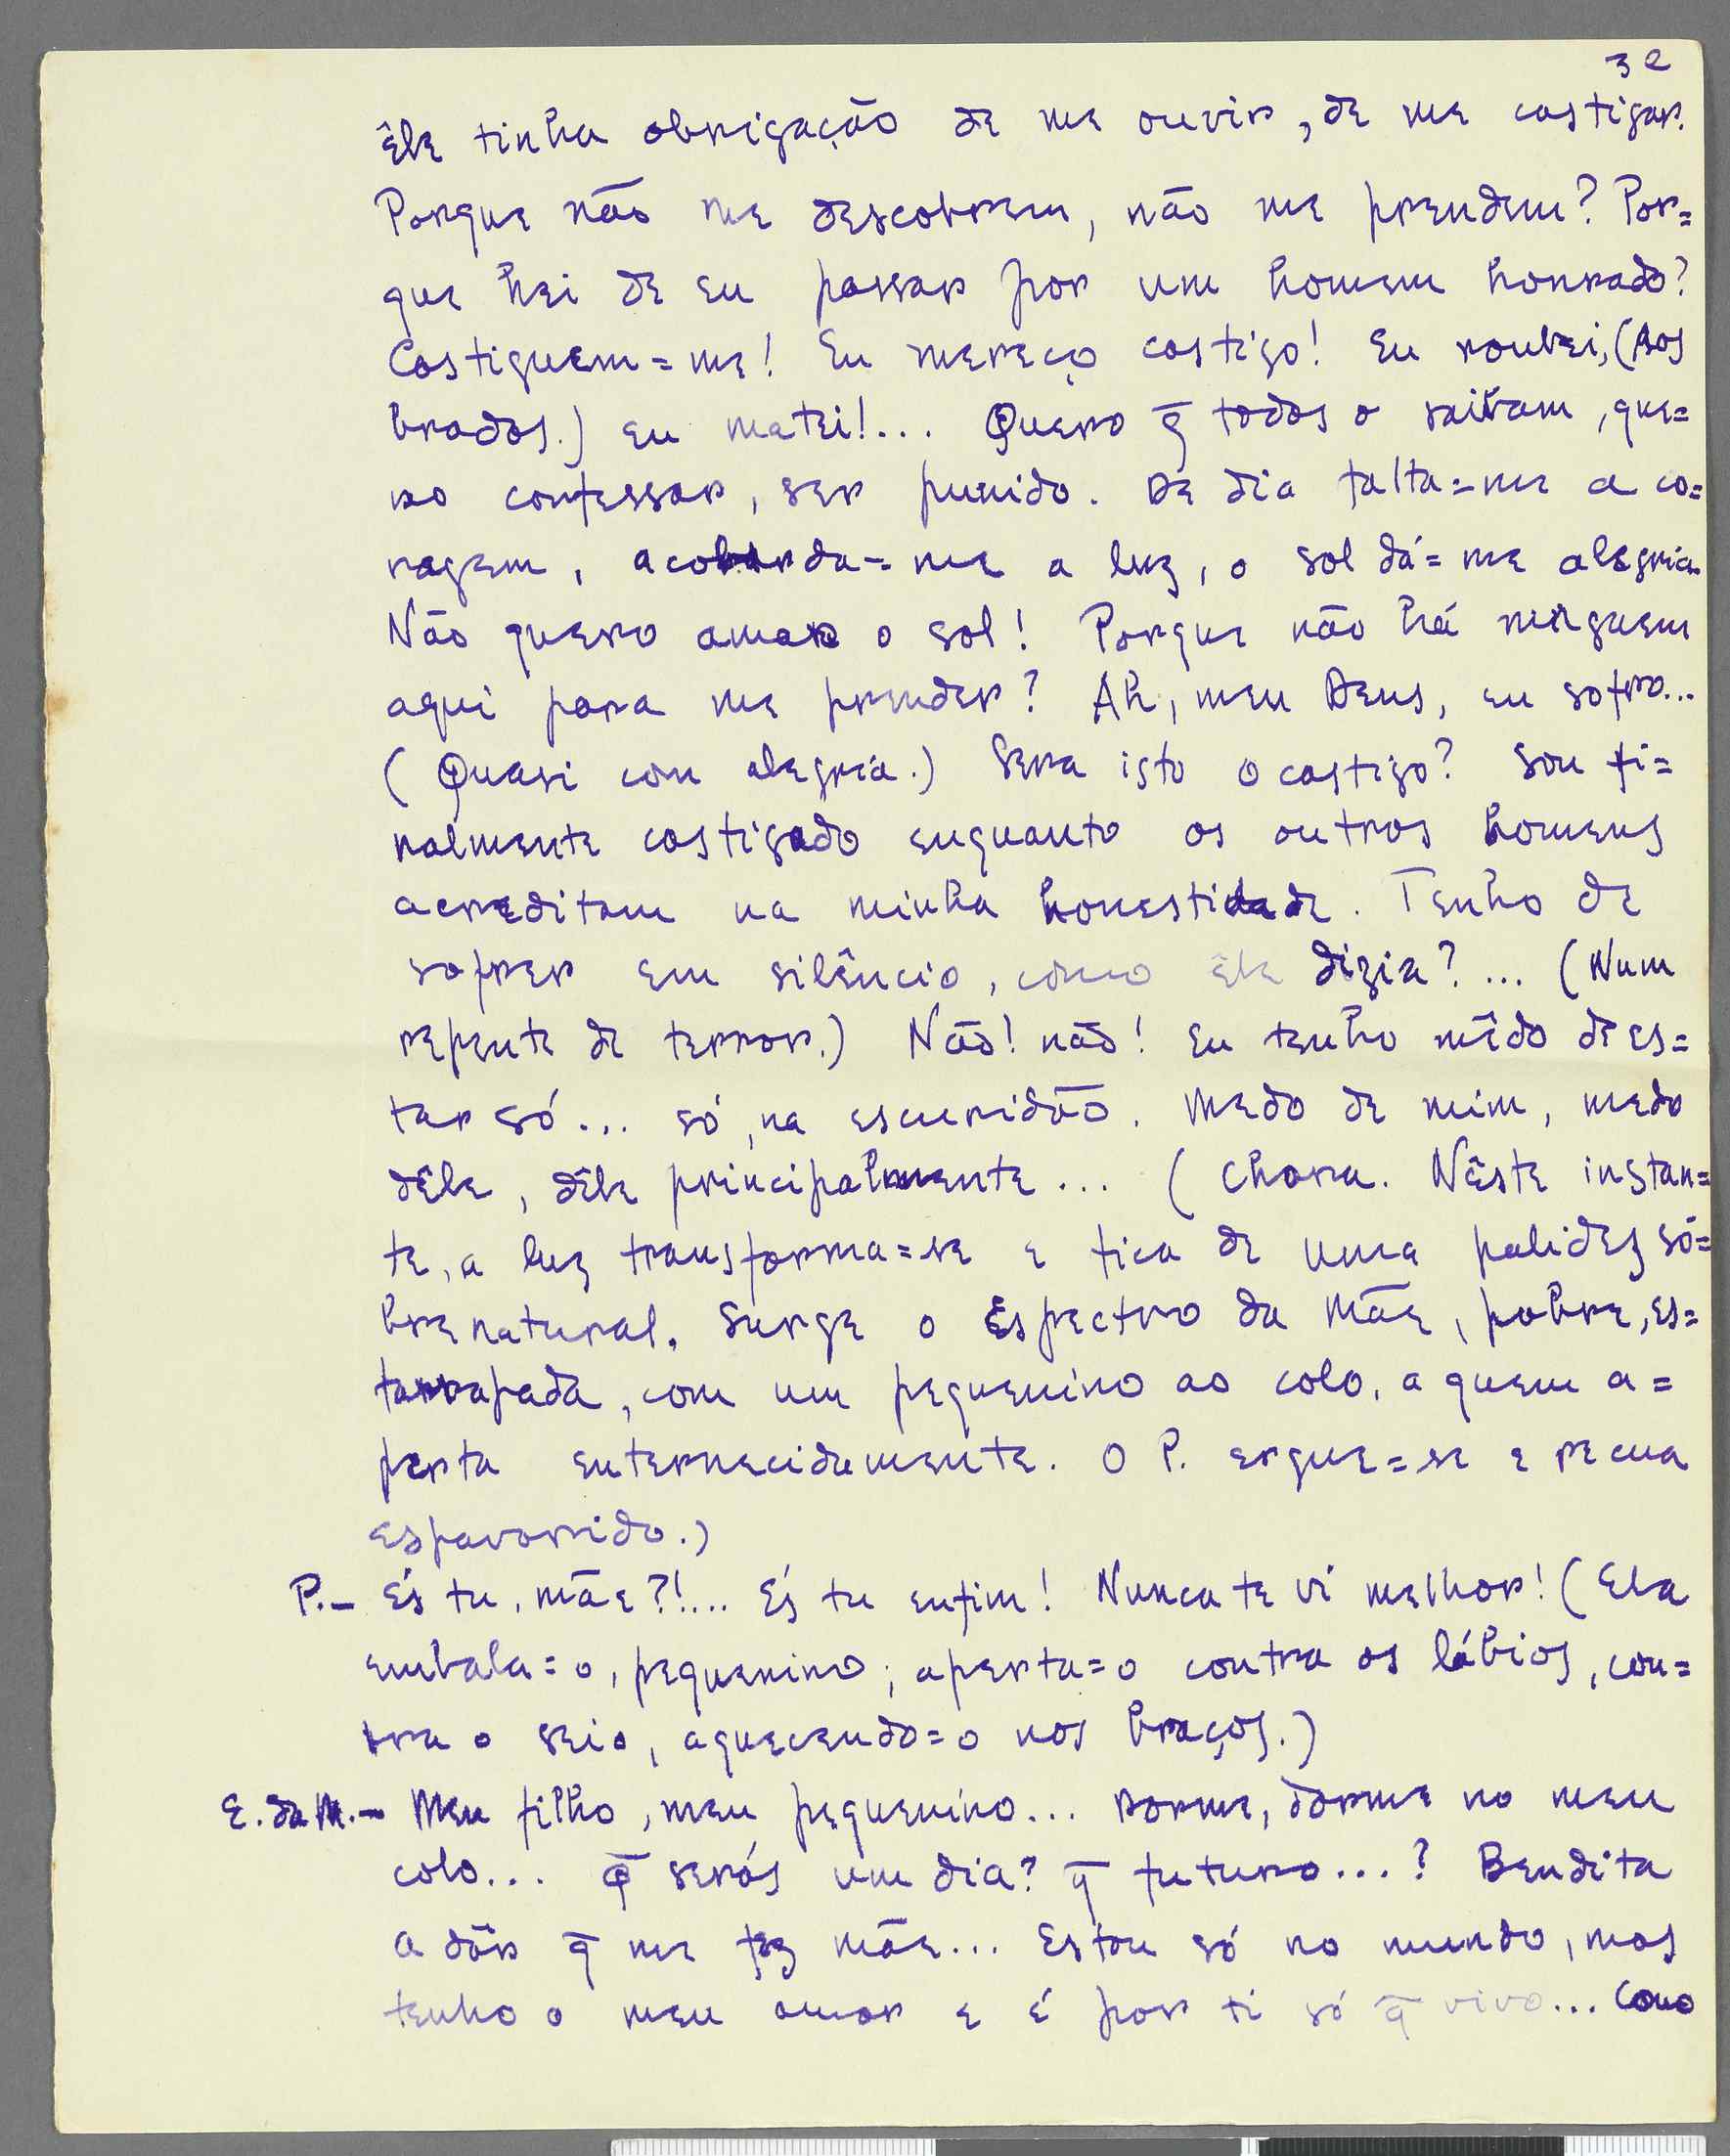 32
Êle tinha obrigação de me ouvir, de me castigar.
Porque não me descobrem, não me prendem? Por=
que hei de eu passar por um homem honrado?
Castiguem=me! Eu mereço castigo! Eu roubei, (Aos
brados.) eu matei!... Quero q̄ todos o saibam, que=
ro confessar, ser punido. De dia falta=me a co=
ragem, acobarda=me a luz, o sol dá=me alegria.
Não quero amar o sol! Porque não há ninguem
aqui para me prender? Ah, meu Deus, eu sofro...
(Quasi com alegria.) Sera isto o castigo? Sou fi=
nalmente castigado enquanto os outros homens
acreditam na minha honestidade. Tenho de
sofrer em silêncio, como êle dizia?... (Num
repente de terror.) Não! não! Eu tenho mêdo de es=
tar só... só, na escuridão. Medo de mim, medo
dêle, dêle principalmente... (Chora. Nêste instan=
te, a luz transforma=se e fica de uma palidez sô=
brenatural. Surge o Espectro da Mãe, pobre, es=
farrapada, com um pequenino ao colo, a quem a=
perta enternecidamente. O P. ergue=se e recua
espavorido.)
P.- És tu, mãe?!... És tu enfim! Nunca te vi melhor! (Ela
embala=o, pequenino; aperta=o contra os lábios, con=
tra o seio, aquecendo=o nos braços.)
E. da M.- Meu filho, meu pequenino... Dorme, dorme no meu
colo... Q̄ serás um dia? q̄ futuro...? Bendita
a dôr q̄ me fez mãe... Estou só no mundo, mas
tenho o meu amor e é por ti só q̄ vivo... Como